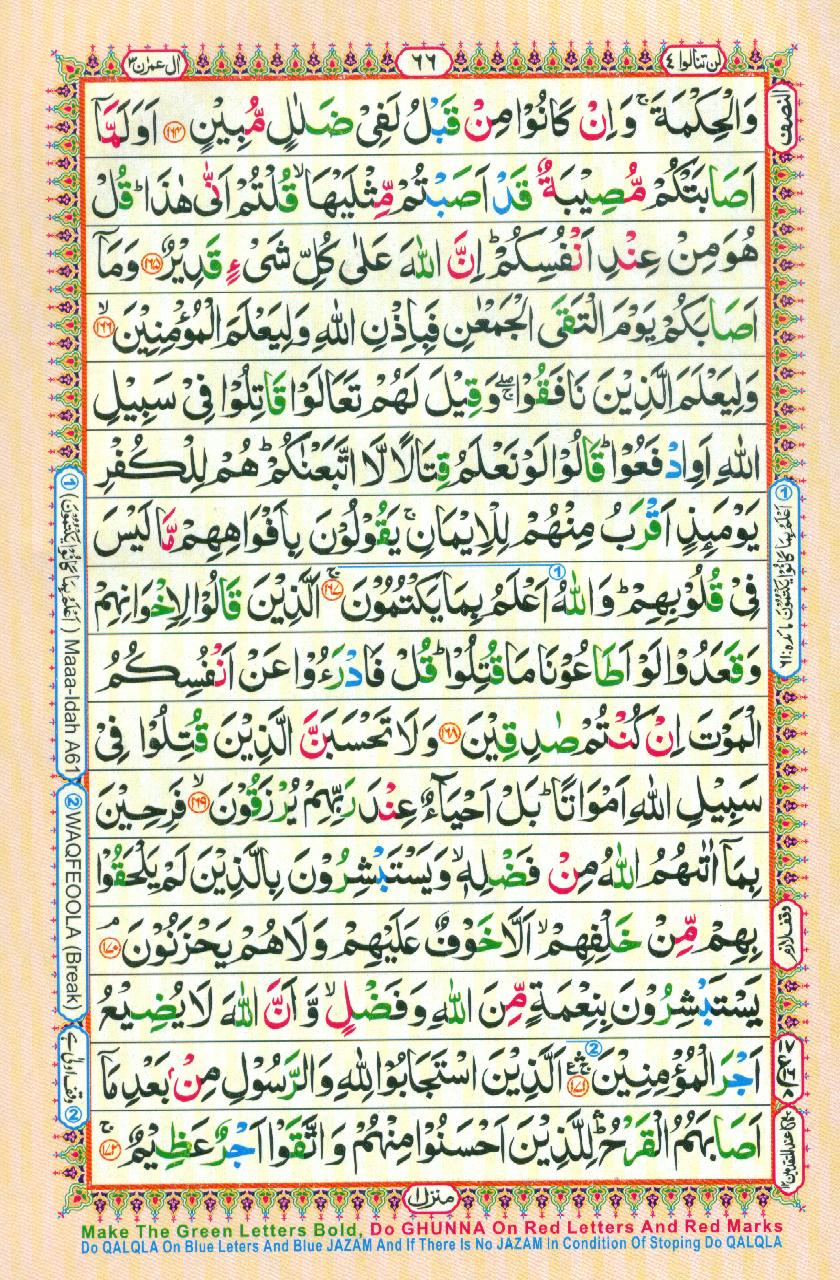 لن تنالوا ٤
٦٦
ال عمرٰن ٣
النصف
وَالْحِكْمَةَ ۚ وَاِنْ كَانُوْا مِنْ قَبْلُ لَفِیْ ضَلٰلٍ مُّبِیْنٍ ﴿۱۶۴﴾ اَوَلَمَّاۤ
اَصَابَتْكُمْ مُّصِیْبَةٌ قَدْ اَصَبْتُمْ مِّثْلَیْهَا ۙ قُلْتُمْ اَنّٰی هٰذَا ؕ قُلْ
هُوَ مِنْ عِنْدِ اَنْفُسِكُمْ ؕ اِنَّ اللّٰهَ عَلٰی كُلِّ شَیْءٍ قَدِیْرٌ ﴿۱۶۵﴾ وَمَاۤ
اَصَابَكُمْ یَوْمَ الْتَقَی الْجَمْعٰنِ فَبِاِذْنِ اللّٰهِ وَلِیَعْلَمَ الْمُؤْمِنِیْنَ ۙ﴿۱۶۶﴾
وَلِیَعْلَمَ الَّذِیْنَ نَافَقُوْا ۖۚ وَقِیْلَ لَهُمْ تَعَالَوْا قَاتِلُوْا فِیْ سَبِیْلِ
اللّٰهِ اَوِادْفَعُوْا ؕ قَالُوْا لَوْ نَعْلَمُ قِتَالًا لَّا اتَّبَعْنٰكُمْ ؕ هُمْ لِلْكُفْرِ
یَوْمَىِٕذٍ اَقْرَبُ مِنْهُمْ لِلْاِیْمَانِ ۚ یَقُوْلُوْنَ بِاَفْوَاهِهِمْ مَّا لَیْسَ
فِیْ قُلُوْبِهِمْ ؕ وَاللّٰهُ ① اَعْلَمُ بِمَا یَكْتُمُوْنَ ۚ﴿۱۶۷﴾ اَلَّذِیْنَ قَالُوْا لِاِخْوَانِهِمْ
وَقَعَدُوْا لَوْ اَطَاعُوْنَا مَا قُتِلُوْا ؕ قُلْ فَادْرَءُوْا عَنْ اَنْفُسِكُمُ
الْمَوْتَ اِنْ كُنْتُمْ صٰدِقِیْنَ ﴿۱۶۸﴾ وَلَا تَحْسَبَنَّ الَّذِیْنَ قُتِلُوْا فِیْ
سَبِیْلِ اللّٰهِ اَمْوَاتًا ؕ بَلْ اَحْیَآءٌ عِنْدَ رَبِّهِمْ یُرْزَقُوْنَ ۙ﴿۱۶۹﴾ فَرِحِیْنَ
بِمَاۤ اٰتٰىهُمُ اللّٰهُ مِنْ فَضْلِهٖ ۙ وَیَسْتَبْشِرُوْنَ بِالَّذِیْنَ لَمْ یَلْحَقُوْا
بِهِمْ مِّنْ خَلْفِهِمْ ۙ اَلَّا خَوْفٌ عَلَیْهِمْ وَلَا هُمْ یَحْزَنُوْنَ ۘ﴿۱۷۰﴾
یَسْتَبْشِرُوْنَ بِنِعْمَةٍ مِّنَ اللّٰهِ وَفَضْلٍ ۙ وَّاَنَّ اللّٰهَ لَا یُضِیْعُ
اَجْرَ الْمُؤْمِنِیْنَ ﴿۱۷۱﴾ ② اَلَّذِیْنَ اسْتَجَابُوْا لِلّٰهِ وَالرَّسُوْلِ مِنْۢ بَعْدِ مَاۤ
اَصَابَهُمُ الْقَرْحُ ؕۛ لِلَّذِیْنَ اَحْسَنُوْا مِنْهُمْ وَاتَّقَوْا اَجْرٌ عَظِیْمٌ ۚ﴿۱۷۲﴾
① اَعْلَمُ بِمَا كَانُوْا یَكْتُمُوْنَ مائدہ : ٦١
وقف لازم
① (اَعْلَمُ بِمَا كَانُوْا یَكْتُمُوْنَ) Maaa-Idah A61
② WAQFEOOLA (Break)
② وقف اولیٰ ہے
منزل ١
Make The Green Letters Bold, Do GHUNNA On Red Letters And Red Marks
Do QALQLA On Blue Leters And Blue JAZAM And If There Is No JAZAM In Condition Of Stoping Do QALQLA